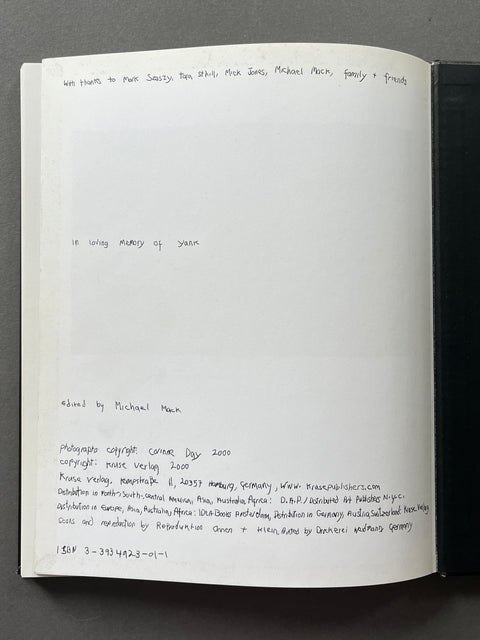 With thanks to Mark Szaszy, Tara St Hill, Mick Jones, Michael Mack, family + friends
in loving memory of Yank
edited by Michael Mack
photographs copyright: Corinne Day 2000
copyright: Kruse Verlag 2000
Kruse Verlag, Kampstraße 11, 20357 Hamburg, Germany, www.krusepublishers.com
Distribution in North-, South-, Central America, Asia, Australia, Africa: D.A.P./Distributed Art Publishers N.Y.C.
Distribution in Europe, Asia, Australia, Africa: IDEA Books Amsterdam, Distribution in Germany, Austria, Switzerland: Kruse Verlag
Scans and reproduction by Reproduktion Onnen + Klein, Printed by Druckerei Germany
ISBN 3-3934923-01-1